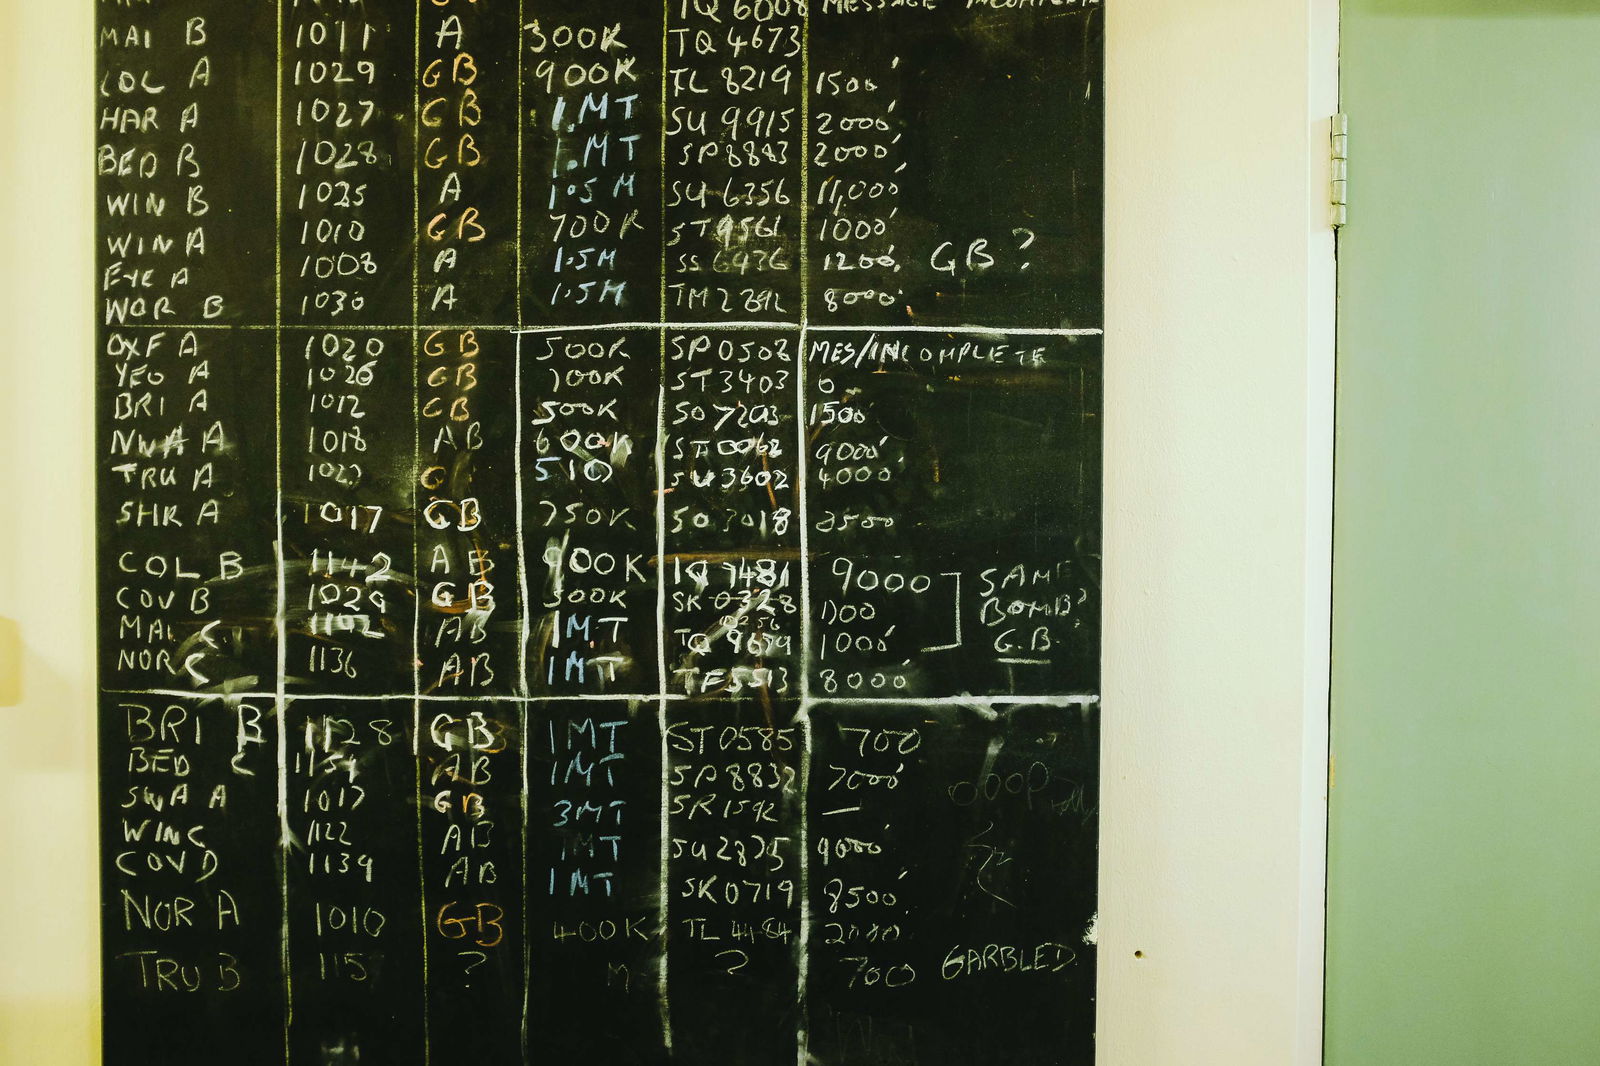 TQ 6008 MESSAGE INCOMPLETE
MAI B 1011 A 300K TQ 4673
COL A 1029 GB 900K TL 8219 1500'
HAR A 1027 GB 1.MT SU 9915 2000'
BED B 1028 GB 1.MT SP 8883 2000'
WIN B 1035 A 1.5 M SU 6356 11,000'
WIN A 1010 GB 700K ST 9561 1000'
EYE A 1008 A 1.5M SS 6436 1200' GB ?
WOR B 1030 A 1.5M TM 2892 8000'
OXF A 1020 GB 500K SP 0502 MES/INCOMPLETE
YEO A 1026 GB 700K ST 3403 0
BRI A 1012 GB 500K SO 7203 1500'
NWA A 1018 AB 600K ST 0062 9000'
TRU A 1023 G 510 SW 3602 4000
SHR A 1017 GB 750K SO 3018 2500
COL B 1142 AB 900K TQ 7481 9000 SAME
COV B 1029 GB 500K SK 0328 1100 BOMB?
MAI C 1102 AB 1MT TQ 9679 1000' G.B.
NOR C 1136 AB 1MT TF 5513 8000'
BRI B 1128 GB 1MT ST 0585 700
BED C 1154 AB 1MT SP 8832 7000'
SWA A 1017 GB 3MT SR 1592 —
WIN C 1122 AB 1MT SU 2875 9000'
COV D 1139 AB 1MT SK 0719 8500'
NOR A 1010 GB 400K TL 4484 2000
TRU B 115 ? M ? 700 GARBLED